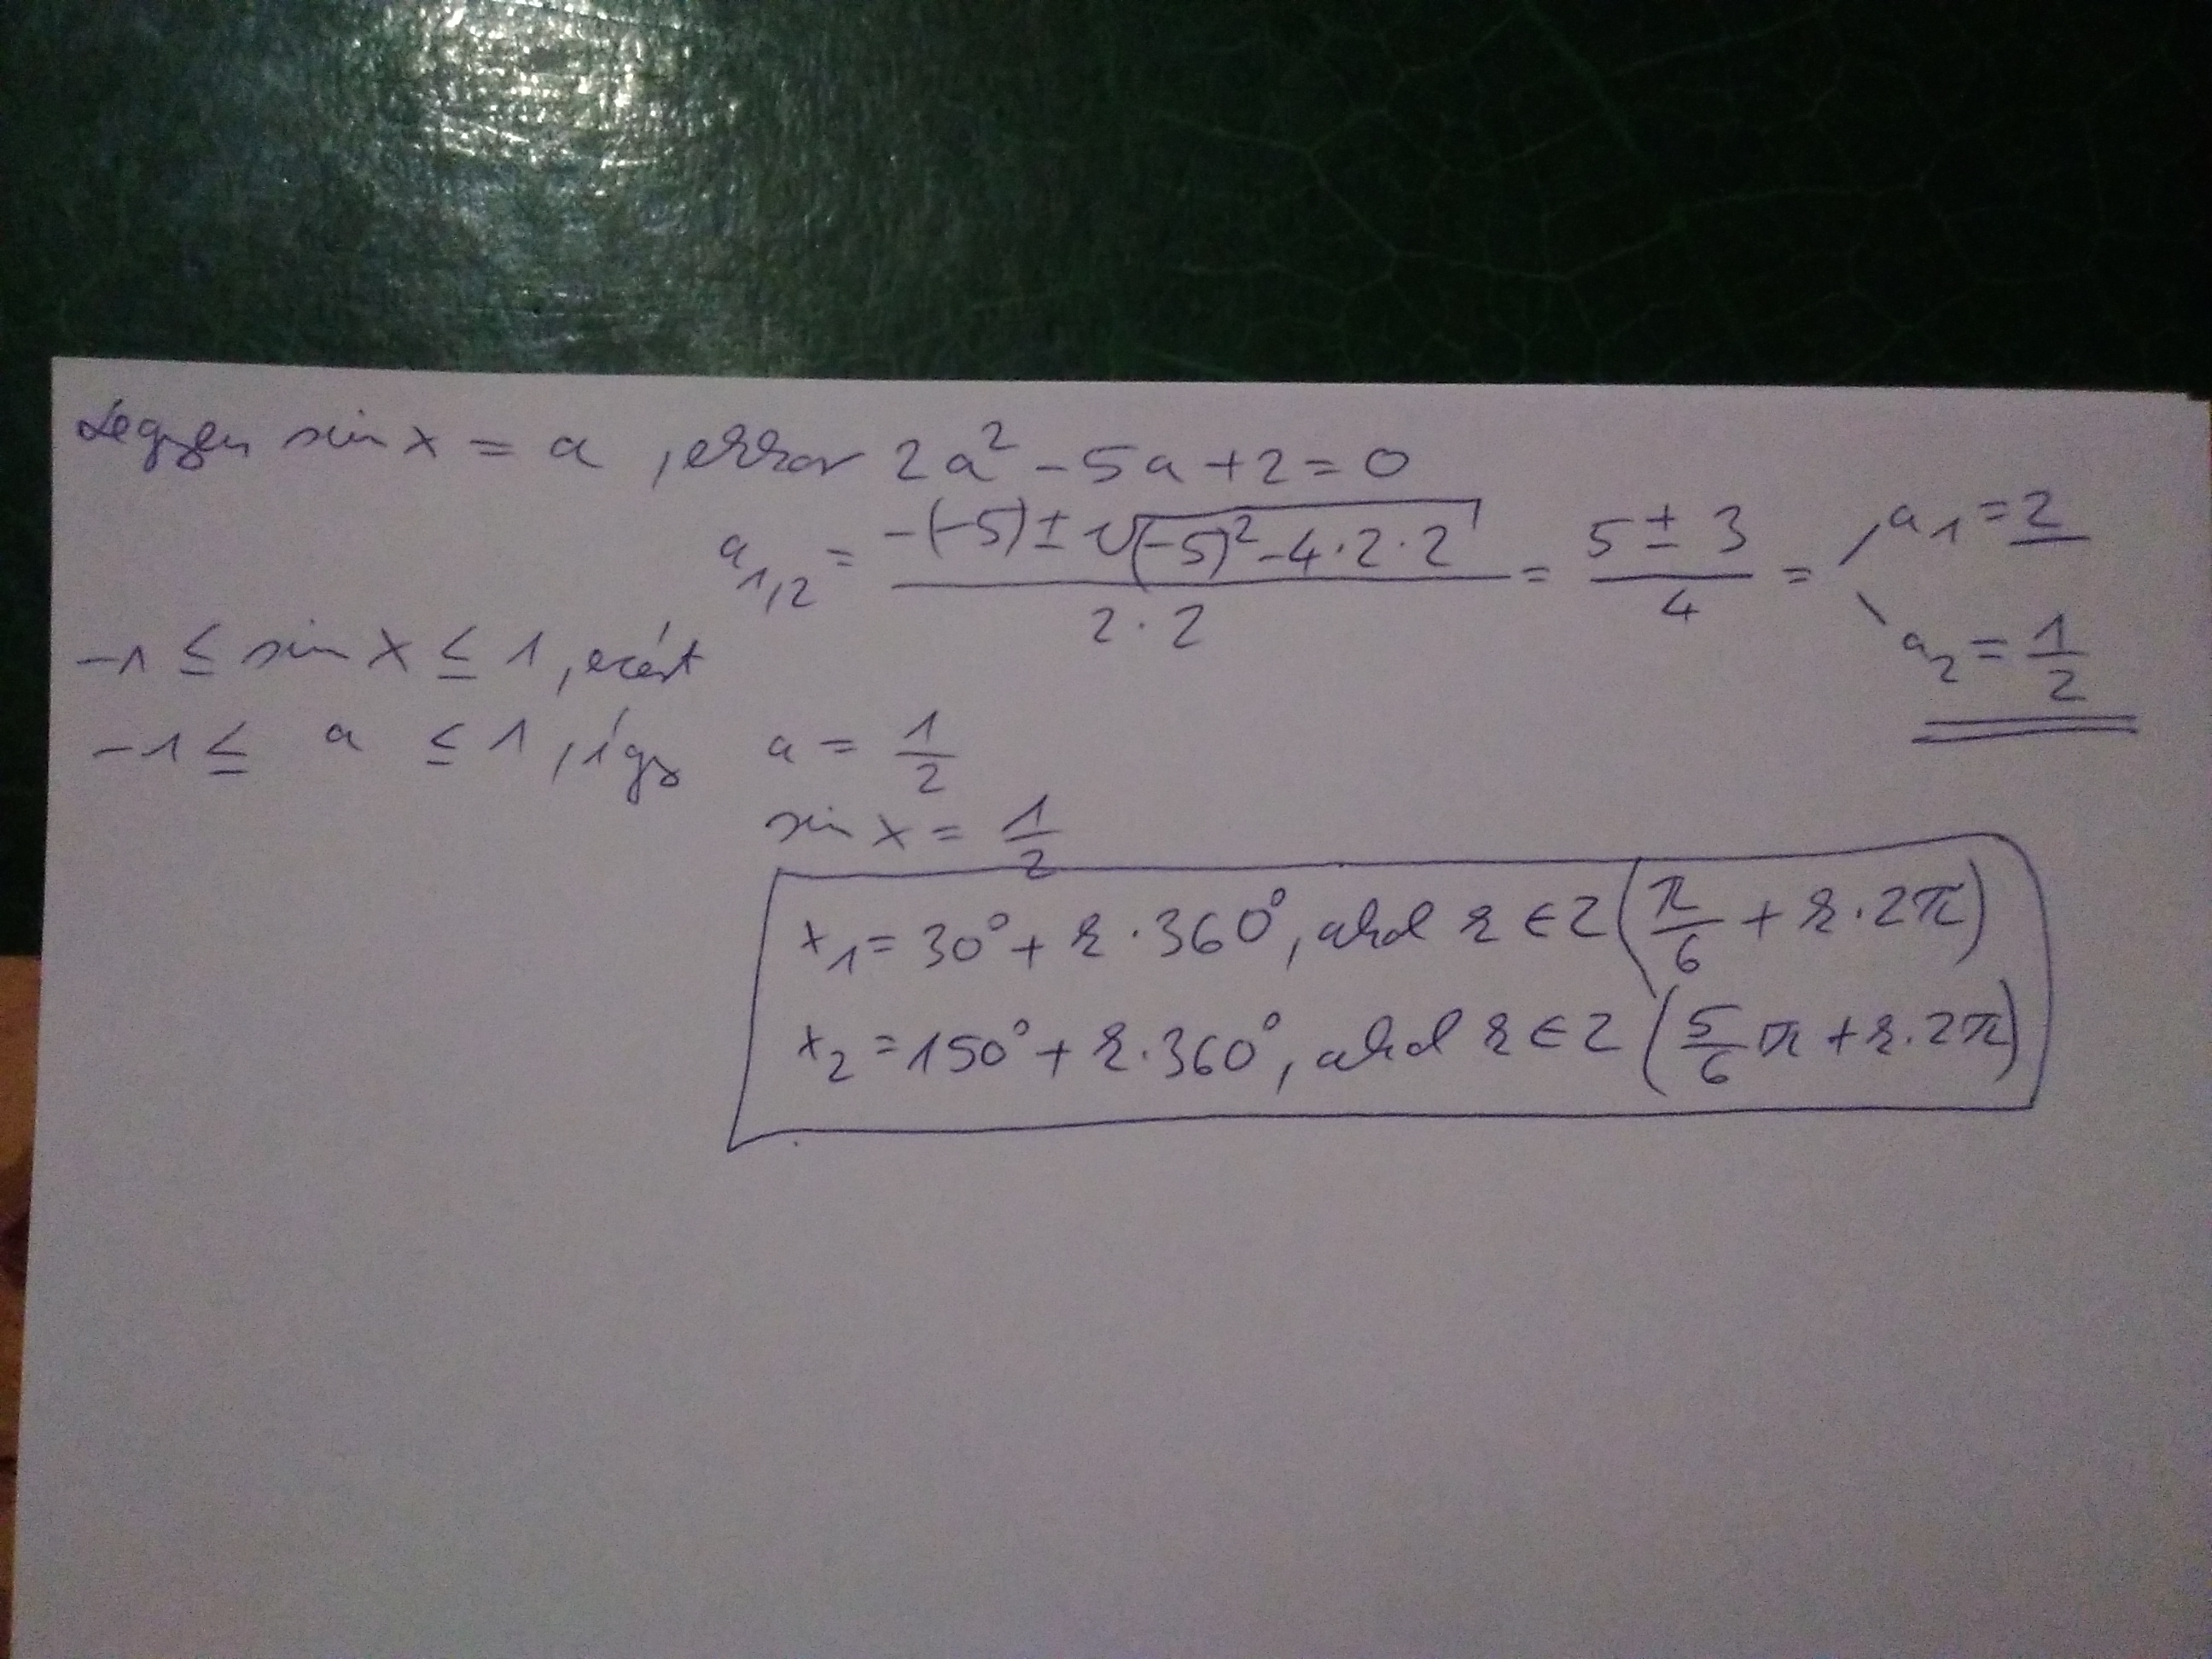 Legyen sin x = a, ekkor 2a² - 5a + 2 = 0
a₁,₂ = (-(-5) ± √((-5)² - 4·2·2)) / (2·2) = (5 ± 3) / 4 = a₁ = 2
a₂ = 1/2
-1 ≤ sin x ≤ 1, ezért
-1 ≤ a ≤ 1, így a = 1/2
sin x = 1/2
x₁ = 30° + k·360°, ahol k ∈ Z (π/6 + k·2π)
x₂ = 150° + k·360°, ahol k ∈ Z (5/6 π + k·2π)